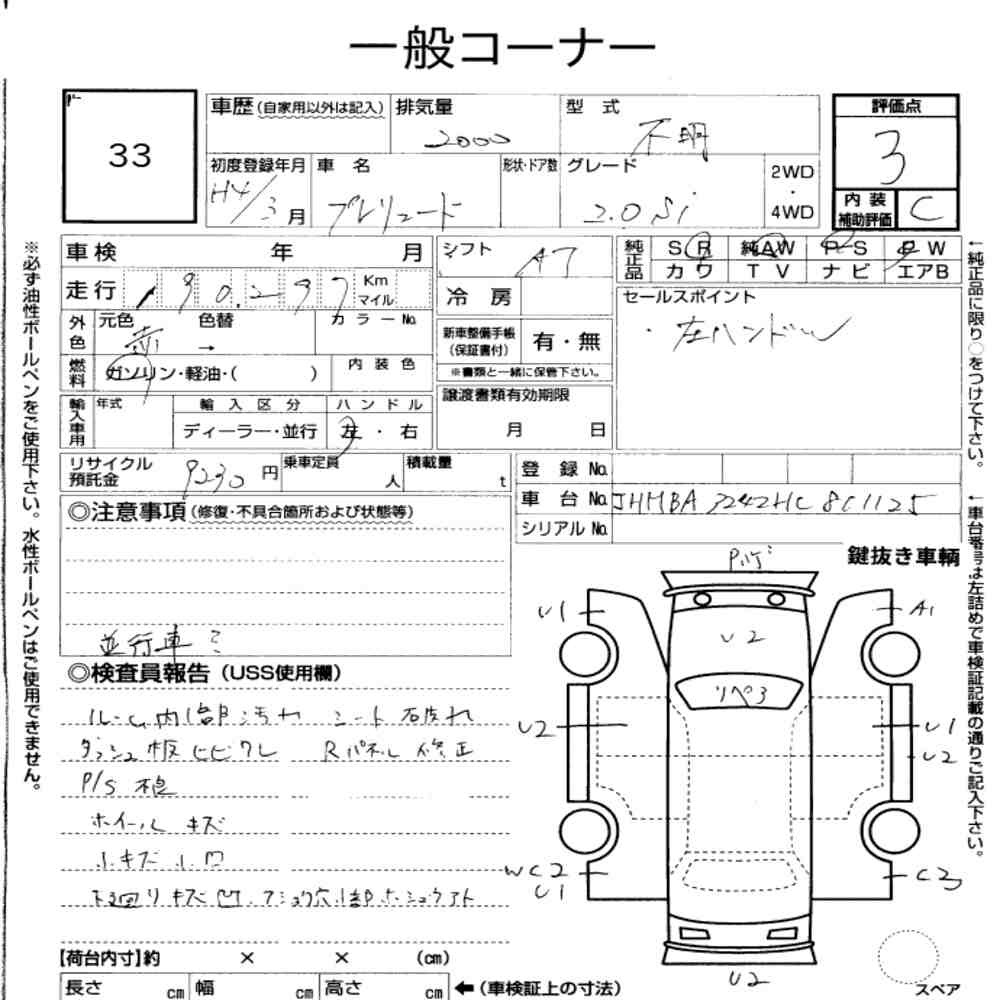 一般コーナー
33
車歴(自家用以外は記入)
排気量
2000
型 式
不明
評価点
3
初度登録年月
H4/3月
車 名
プレリュード
形状・ドア数
グレード
2.0 Si
2WD
・
4WD
内 装
補助評価
C
車検 年 月
走行
Km
マイル
シフト
マット
AT
冷 房
純正品
SR 純AW PS PW
カワ TV ナビ エアB
外色
元色 色替
赤 →
カラーNo.
新車整備手帳
(保証書付)
有・無
※書類と一緒に保管下さい。
セールスポイント
・左ハンドル
燃料
ガソリン・軽油・( )
内 装 色
譲渡書類有効期限
月 日
輸入車用
年式
輸 入 区 分
ディーラー・並行
ハ ン ド ル
左 ・ 右
リサイクル
預託金
9230円
乗車定員
人
積載量
t
登 録 No.
車 台 No.
シリアル No.
◎注意事項(修復・不具合箇所および状態等)
並行車
鍵抜き車輌
◎検査員報告(USS使用欄)
ルーム内部汚れ シート破れ
ダッシュ板ヒビワレ Rパネル修正
P/S 穏
ホイール キズ
小キズ小凹
下廻りキズ凹.
U1
A1
U2
リペ3
U2
U1
U2
WC2
U1
C3
U2
スペア
【荷台内寸】約 × × (cm)
長さ cm 幅 cm 高さ cm ←(車検証上の寸法)
※必ず油性ボールペンをご使用下さい。水性ボールペンはご使用できません。
←純正品に限り○をつけて下さい。
←車台番号は左詰めで車検証記載の通りご記入下さい。